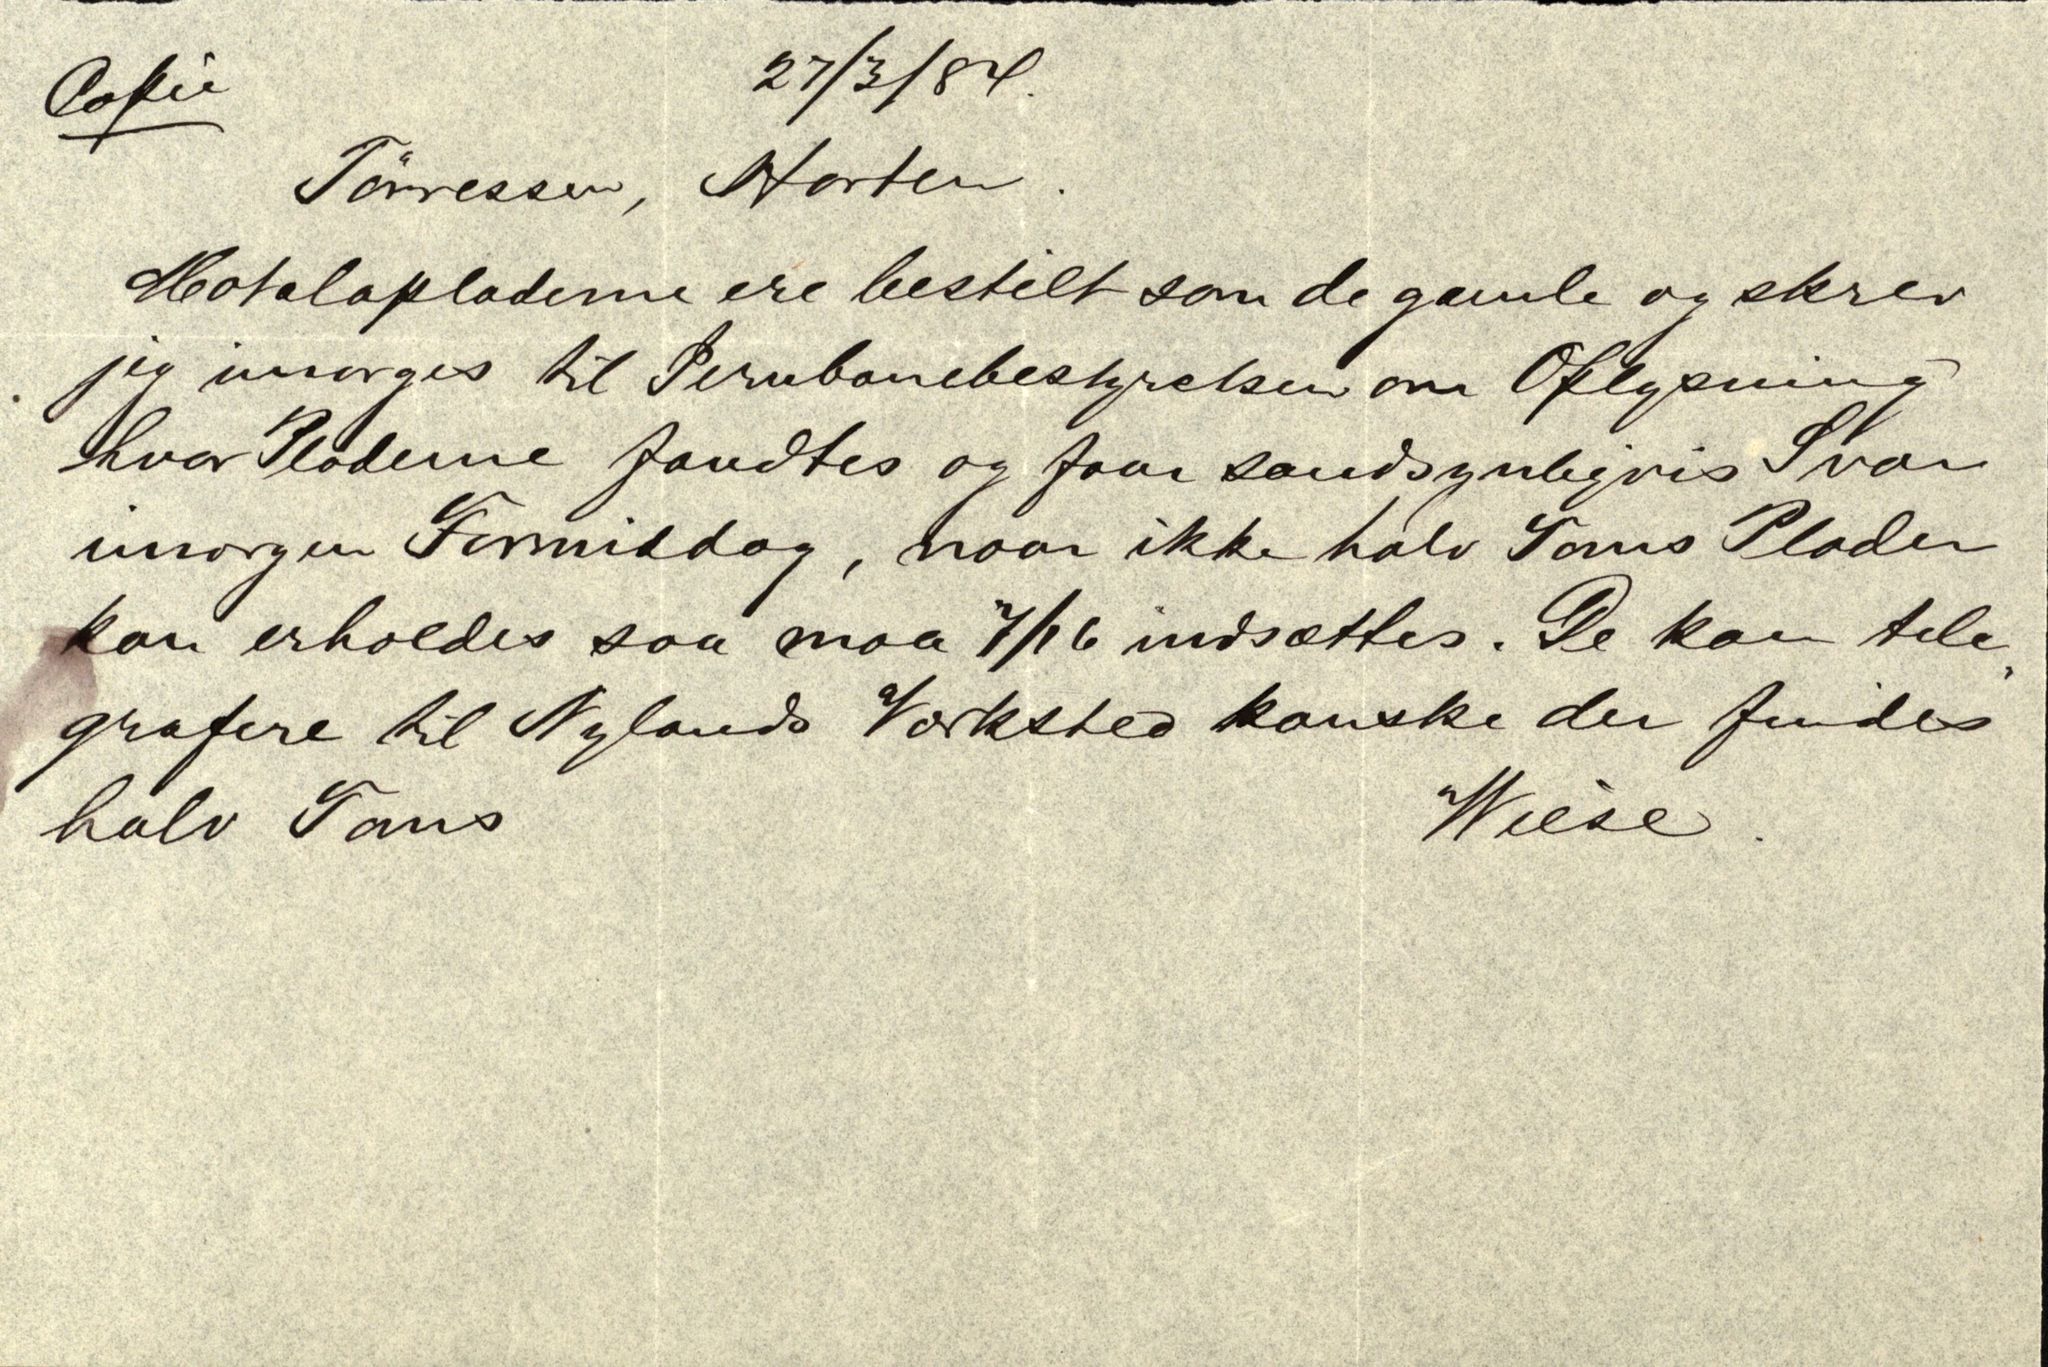 Copie 27/3/84.
Törressen, Horten.
Motalapladerne ere bestilt som de gamle og skrev
jeg imorges til Jernbanebestyrelsen om Oplysning
hvor Pladerne fandtes og faar sandsynligvis Svar
imorgen Formiddag, naar ikke halv Toms Plader
kan erholdes saa maa 7/16 indsættes. De kan tele„
grafere til Nylands Værksted kanske der findes
halv Toms
Wiese.